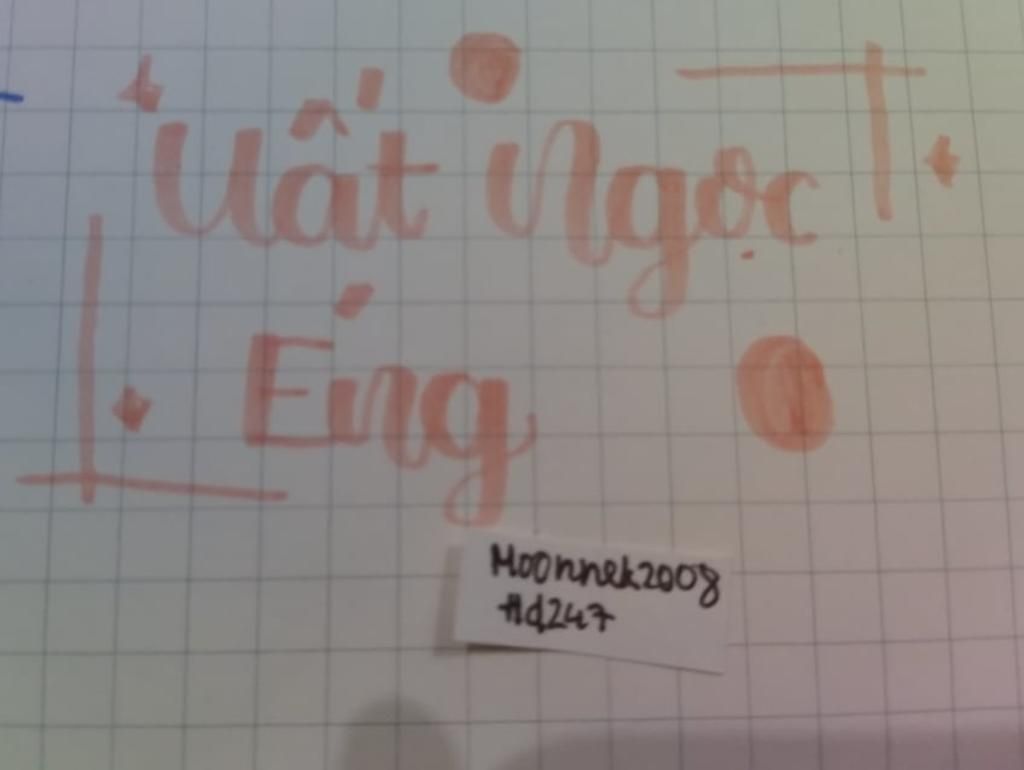 Uất Ngọc
Ếing
Moonnek2008
Hd247